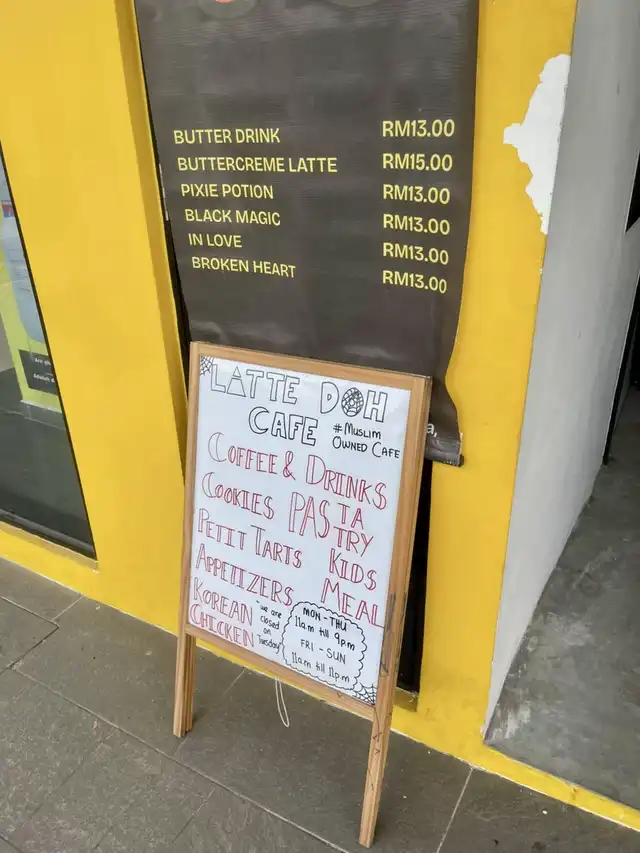 BUTTER DRINK RM13.00
BUTTERCREME LATTE RM15.00
PIXIE POTION RM13.00
BLACK MAGIC RM13.00
IN LOVE RM13.00
BROKEN HEART RM13.00
LATTE DOH
CAFE
#MUSLIM
OWNED CAFE
COFFEE & DRINKS
COOKIES
PASTA
TRY
PETIT TARTS
KIDS
MEAL
APPETIZERS
KOREAN
CHICKEN
"we are
closed
on
Tuesday"
MON - THU
11am till 9pm
FRI - SUN
11am till 11pm